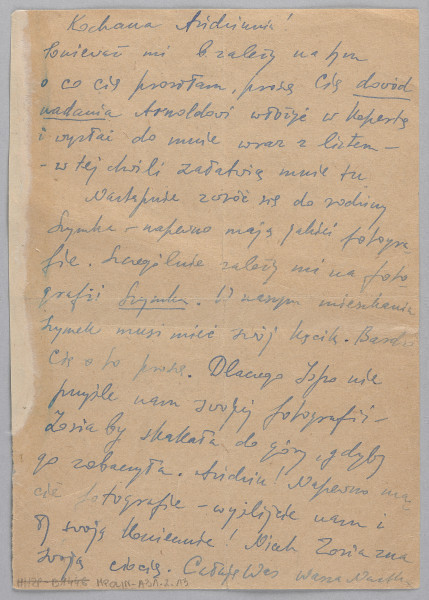 Kochana Andziuniu!
Ponieważ mi b. zależy na tym
o co cię prosiłam, proszę Cię dowód
nadania Arnoldowi włożyć w kopertę
i wysłać do mnie wraz z listem –
– w tej chwili załatwią mnie tu
Następnie zwróć się do rodziny
Szymka – napewno mają jakieś fotogra-
fie. Szczególnie zależy mi na foto-
grafii Szymka. W naszym mieszkaniu
Szymek musi mieć swój kącik. Bardzo
Cię o to proszę. Dlaczego nie
przyśle nam swojej fotografii –
Zosia by skakała do góry, gdyby
go zobaczyła. Andziu! Napewno ma
cie fotografie – wyślijcie nam i
Ty swoją koniecznie! Niech Zosia zna
swoją ciocię. Całuję Was Wasza